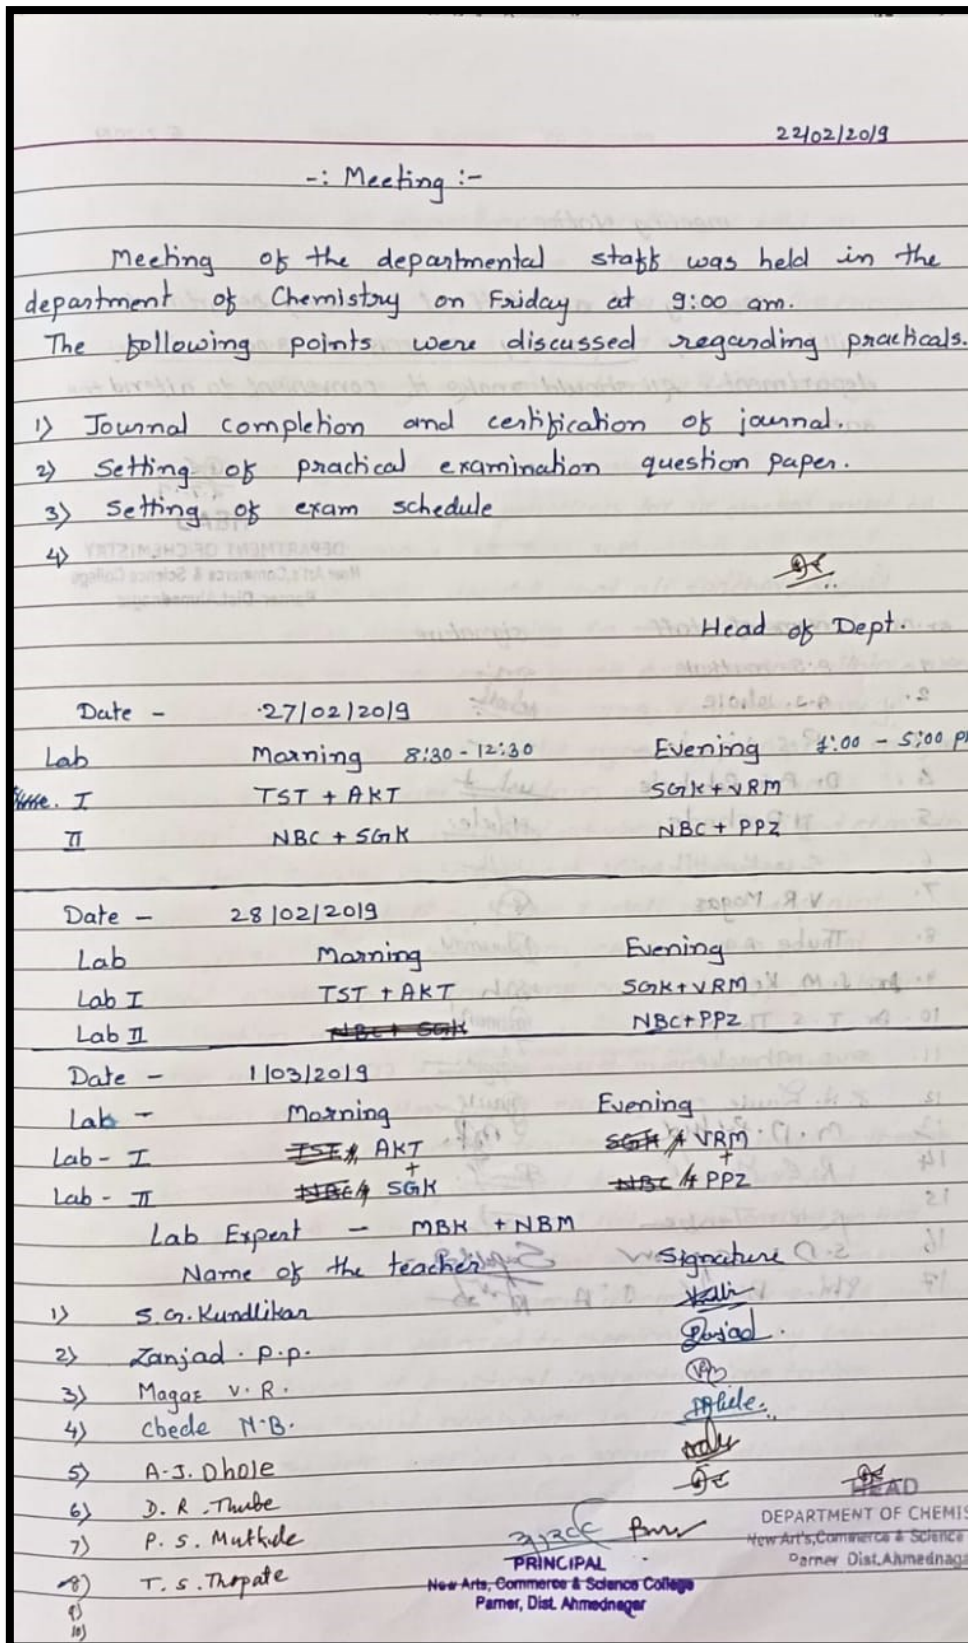 22/02/2019
-: Meeting :-
Meeting of the departmental staff was held in the
department of Chemistry on Friday at 9:00 am.
The following points were discussed regarding practicals.
1) Journal completion and certification of journal.
2) Setting of practical examination question paper.
3) Setting of exam schedule
4)
Head of Dept.
Date - 27/02/2019
Lab Morning 8:30 - 12:30 Evening 1:00 - 5:00 p
I TST + AKT SGK + VRM
II NBC + SGK NBC + PPZ
Date - 28/02/2019
Lab Morning Evening
Lab I TST + AKT SGK + VRM
Lab II NBC + SGK NBC + PPZ
Date - 1/03/2019
Lab - Morning Evening
Lab - I TST AKT SGK VRM
+ +
Lab - II NBC SGK NBC PPZ
Lab Expert - MBK + NBM
Name of the teacher Signature
1) S.G. Kundlikar
2) Zanjad . P.P. Zanjad.
3) Magar V. R.
4) Chede N.B.
5) A.J. Dhole
6) D. R. Thube
7) P. S. Mutkule
8) T. S. Thopate
9)
10)
PRINCIPAL
New Arts, Commerce & Science College
Parner, Dist. Ahmednagar
HEAD
DEPARTMENT OF CHEMIS
New Art's, Commerce & Science
Parner Dist. Ahmednaga